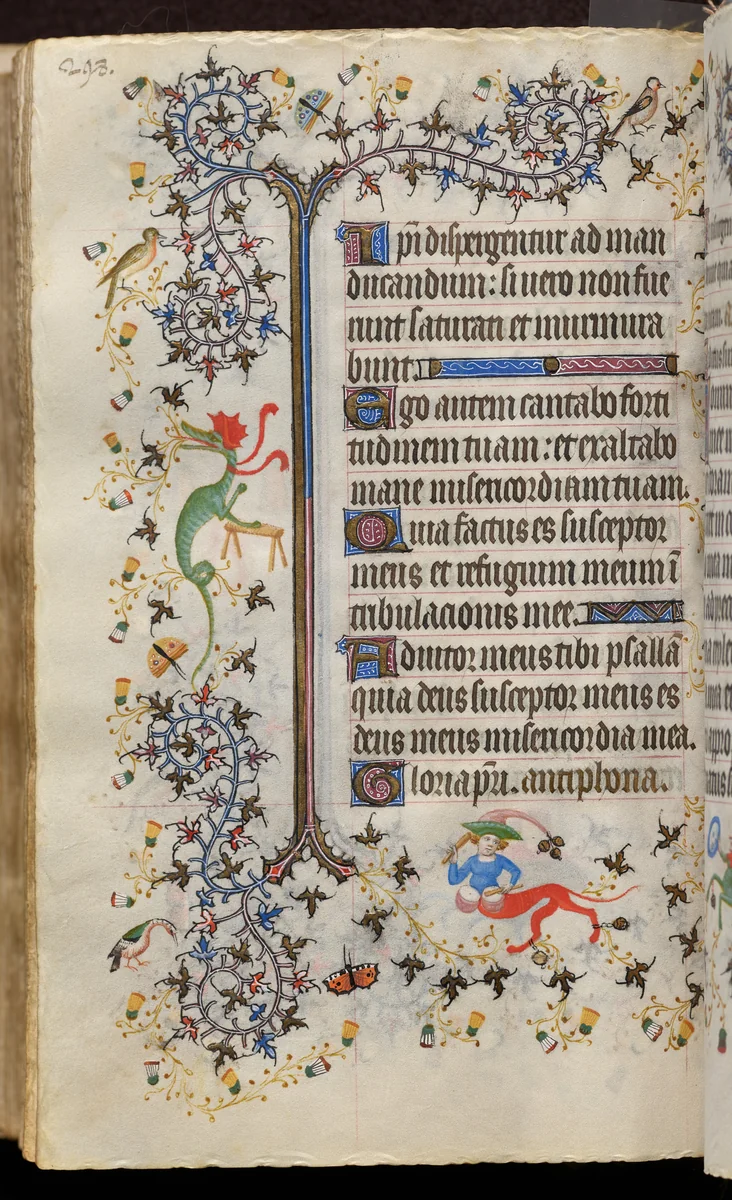 Ipi dispergentur ad man
ducandum: si vero non fue
runt saturati et murmura
bunt.
Ego autem cantabo forti
tudinem tuam: et exaltabo
mane misericordiam tuam.
Quia factus es susceptor
meus et refugium meum ī
tribulacionis mee.
Adiutor meus tibi psallā
quia deus susceptor meus es
deus meus misericordia mea.
Gloria pr̄i. antiphona.